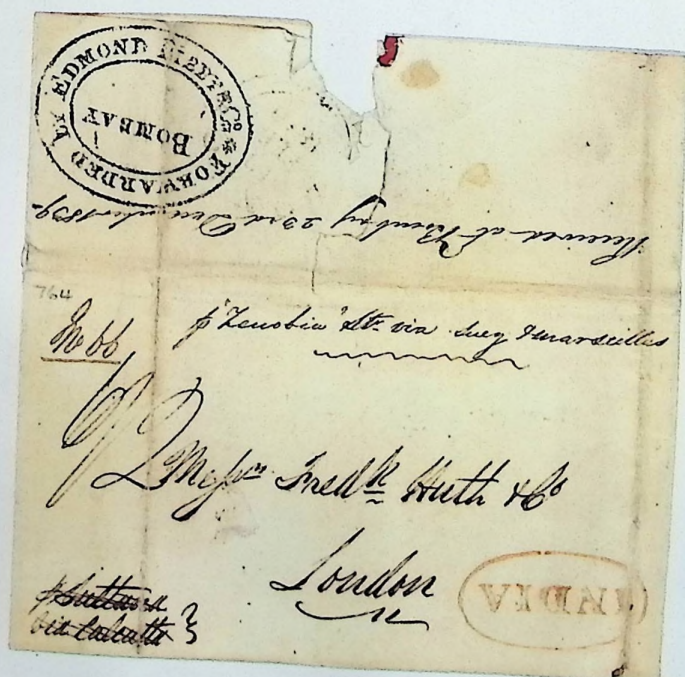 FORWARDED by EDMOND BIBBY & Co
BOMBAY
Received at Bombay 23rd December 1839
764
No 66
p "Zenobia" Str via Suez & Marseilles
Messrs Fredk Huth & Co
London
via Calcutta
INDIA